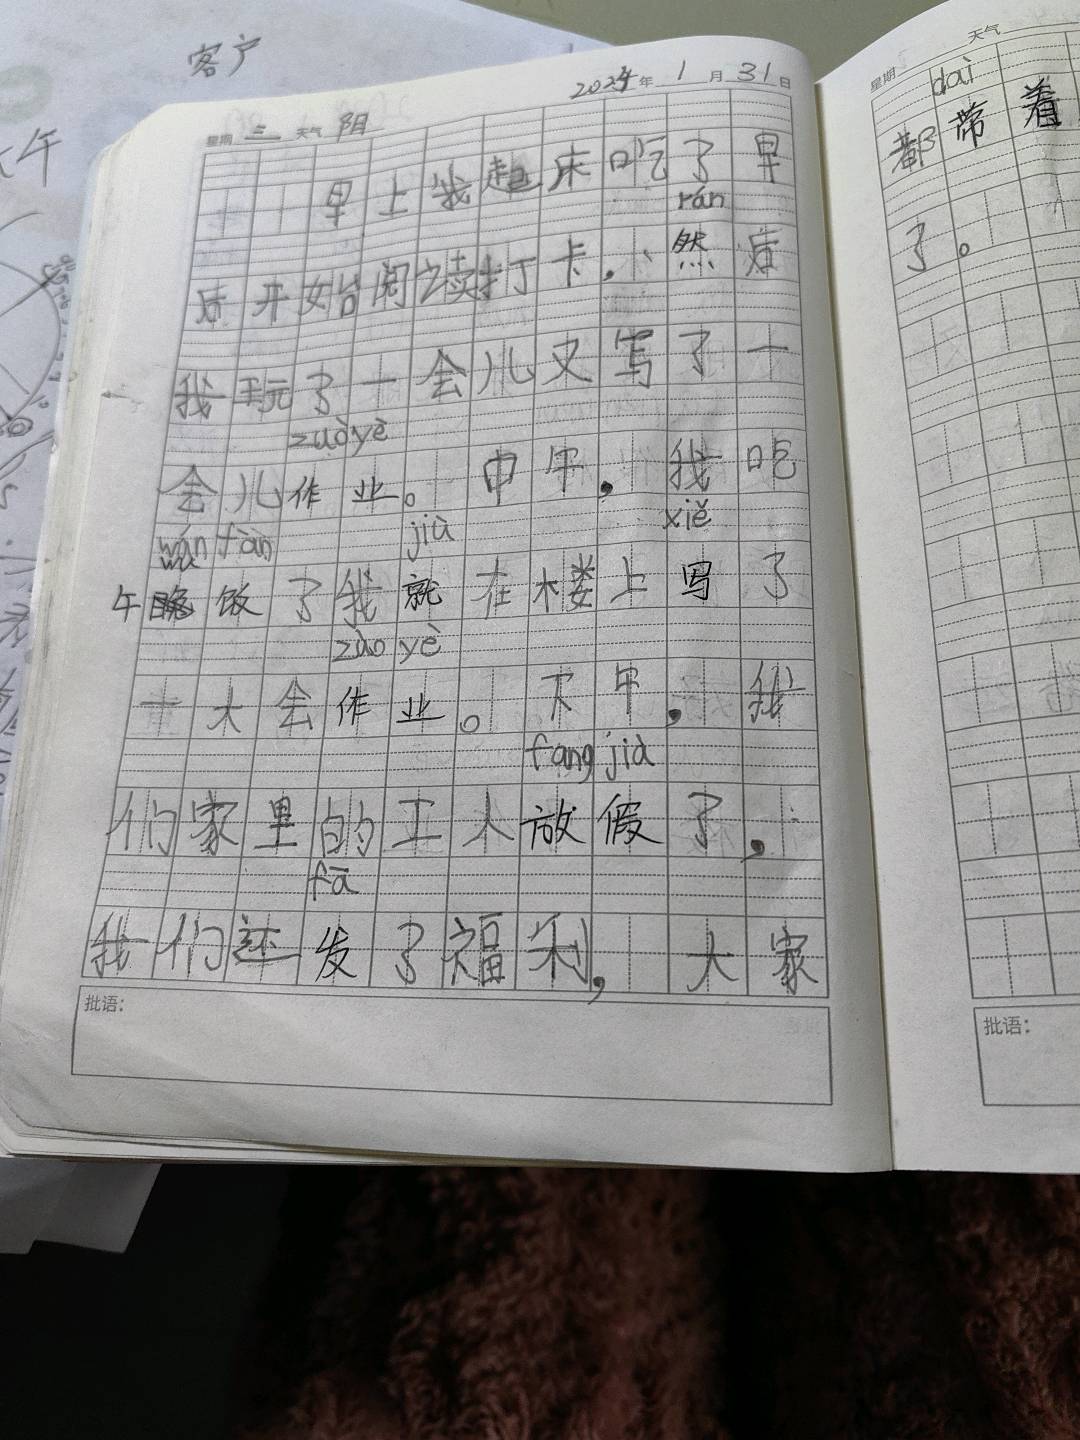 客户
2024年 1月 31日
星期 三 天气 阴
早上我起床吃了早
后开始阅读打卡，然后
rán
我玩了一会儿又写了一
zuòyè
会儿作业。中午，我吃
wán fàn jiù xiě
午晚饭了我就在楼上写了
zuò yè
一大会作业。下午，我
fang jià
们家里的工人放假了，
fā
我们还发了福利，大家
批语：
星期 天气
dai
都带着
了。
批语：